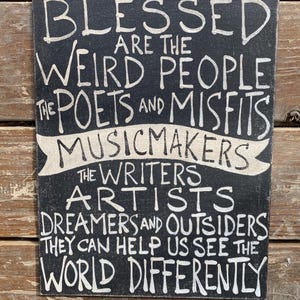 BLESSED
ARE THE
WEIRD PEOPLE
THE POETS AND MISFITS
MUSICMAKERS
THE WRITERS
ARTISTS
DREAMERS AND OUTSIDERS
THEY CAN HELP US SEE THE
WORLD DIFFERENTLY